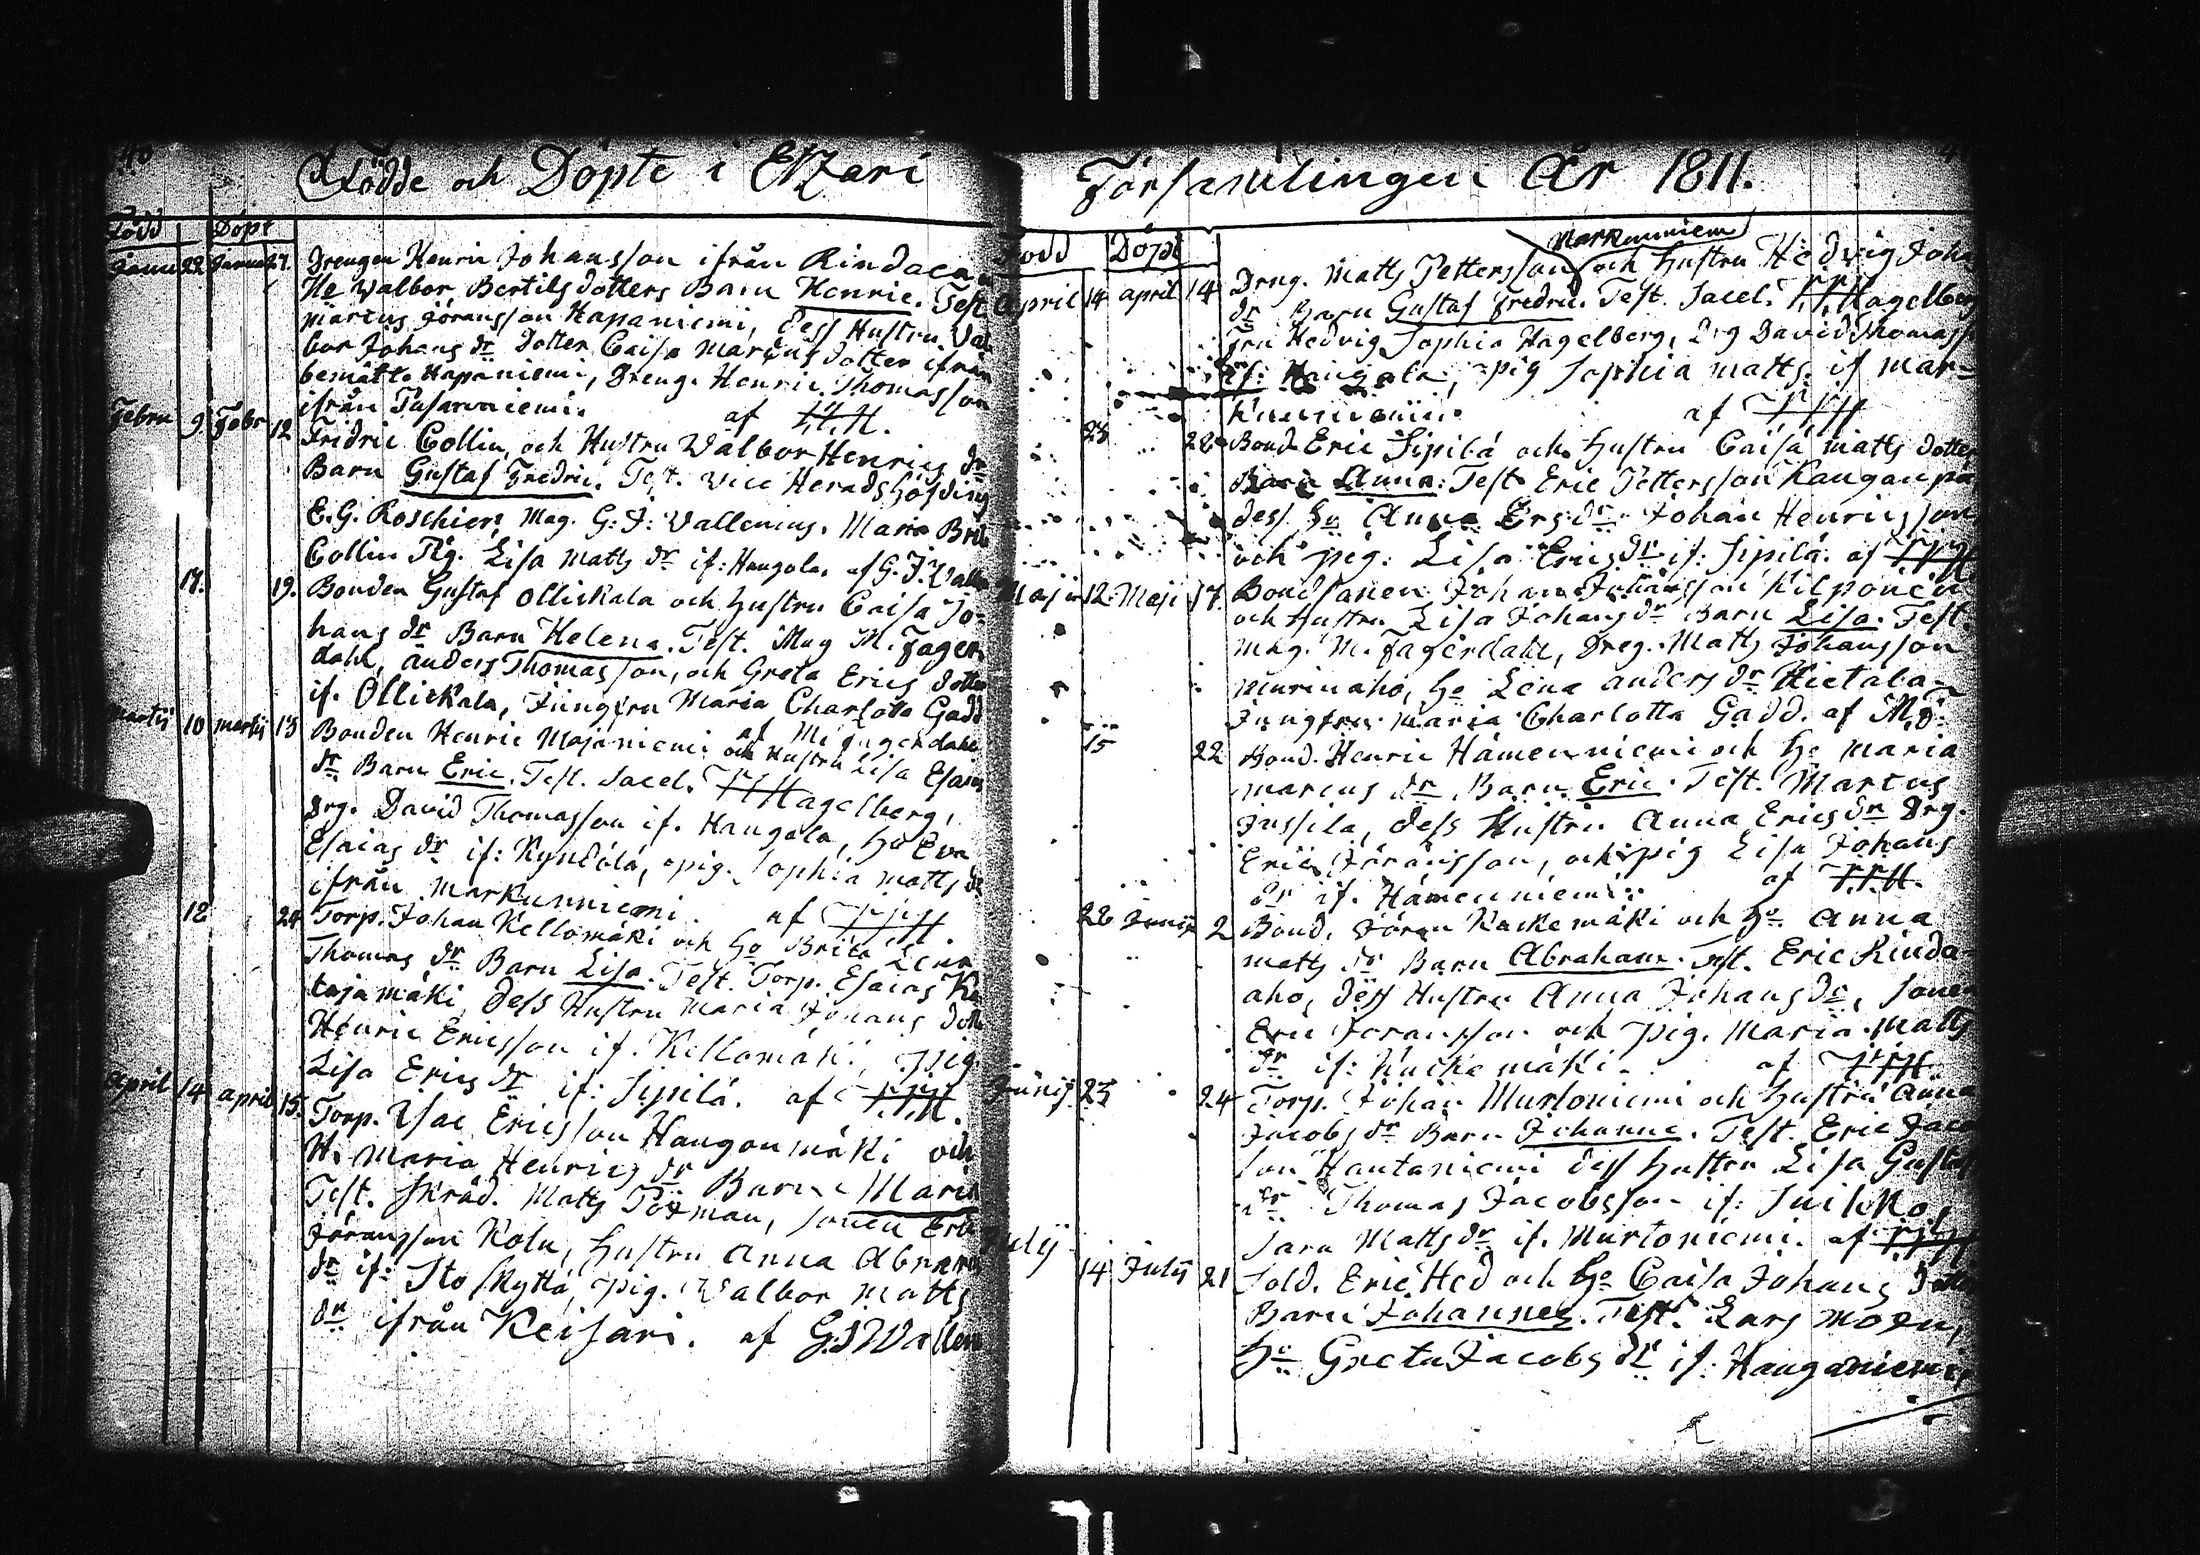 40
Födde och Döpte i Etzäri
Född Döpt
Janu 22 Janua 27. Drengen Henric Johansson ifrån Rindaca
He Walbor Bertils dotters Barn Henric. Test
Marcus Jöransson Hapaniemi, dess Hustru Val
bor Johans dr Dotter Caisa Marcus dotter ifrån
bemälte Hapaniemi, Dreng. Henric Thomasson
ifrån Pasarniemi. af
Febru 9 Febr 12 Fridric Collin, och Hustru Walbor Henrics dr
Barn Gustaf Fredric. Test. Vice Heradshöfding
E. G. Roschier, Mag. G: J: Vallenius. Maria Brit
Collin Pig. Lisa Matts dr if: Haugala. af G. J. Valle
17. 19. Bonden Gustaf Ollickala och Hustru Caisa Jo-
hans dr Barn Helena. Test. Mag M. Fager
dahl, Anders Thomasson, och Greta Erics dotter
if. Ollickala, Jungfru Maria Charlotta Gadd
af M: Fagerdahl
Martij 10 Martij 13 Bonden Henric Majaniemi och Hustru Lisa Esaias
dr Barn Eric. Test. Sacel. Hagelberg,
Drg. David Thomasson if. Haugala, Ho Eva
Esaias dr if: Kyndölä, pig. Sophia Matts dr
ifrån Markunniemi. af
12 24 Torp. Johan Kellomäki och Ho Brita Lena
Thomas dr Barn Lisa. Test. Torp. Esaias Ka
tajamäki, Dess Hustru Maria Johans dott
Henric Ericsson if. Kellomäki, pig
Lisa Erics dr if: Sipilä. af
April 14 April 15. Torp. Isac Ericsson Haugonmäki och
H. Maria Henrics dr Barn Maria
Test. Skräd. Matts Törman, Sonen Eric
Jöransson Kolu, Hustru Anna Abram
dr if: Sto Kyttä, pig. Walbor Matts
dr ifrån Keisari. af G. J Wallen
Församlingen År 1811.
Född Döpt
Markunniemi
April 14 April 14 Dreng. Matts Pettersson och Hustru Hedvig Joh
dr Barn Gustaf Fredric. Test. Sacel. Hagelberg
Fru Hedvig Sophia Hagelberg, Drg David Thomass
if: Haugala, pig Sophia Matts. if Mar-
kunniemi. af
28 28 Bond Eric Sipilä och Hustru Caisa Matts dotter
Barn Anna. Test Eric Pettersson Kauganpä
dess Ho Anna Ersdr Johan Henricsson
och pig. Lisa Ericsdr if: Sipilä. af
Maji 12. Maji 17. Bondsonen Johan Johansson Kilponen
och Hustru Lisa Johans dr Barn Lisa. Test
Mag. M. Fagerdahl, Dreg. Matts Johansson
Murinaho, Ho Lena Anders dr Hietala-
Jungfru Maria Charlotta Gadd. af M. F.
15 22 Bond. Henric Hämenniemi och Ho Maria
Marcus dr Barn Eric. Test. Marcus
Jussila, Dess Hustru Anna Erics dr Drg.
Eric Jöransson, och pig Lisa Johans
dr if. Hämenniemi. af
26 Junij 2 Bond. Jöran Kuckemäki och Ho Anna
Matts dr Barn Abraham. Test. Eric Rinda-
aho, dess Hustru Anna Johans dr, Sonen
Eric Jöransson och pig. Maria Matts
dr if: Kuckemäki. af
Junij 23 24 Torp. Johan Murtoniemi och Hustru Anna
Jacobs dr Barn Johanne. Test. Eric Jaco
son Hautaniemi dess Hustru Lisa Gustaf
dr Thomas Jacobsson if:
Sara Matts dr if. Murtoniemi. af
Julij 14 Julij 21 Sold. Eric Hed och Ho Caisa Johans dott
Barn Johannes. Test. Lars Moen,
Ho Greta Jacobs dr if: Hauganiemi,